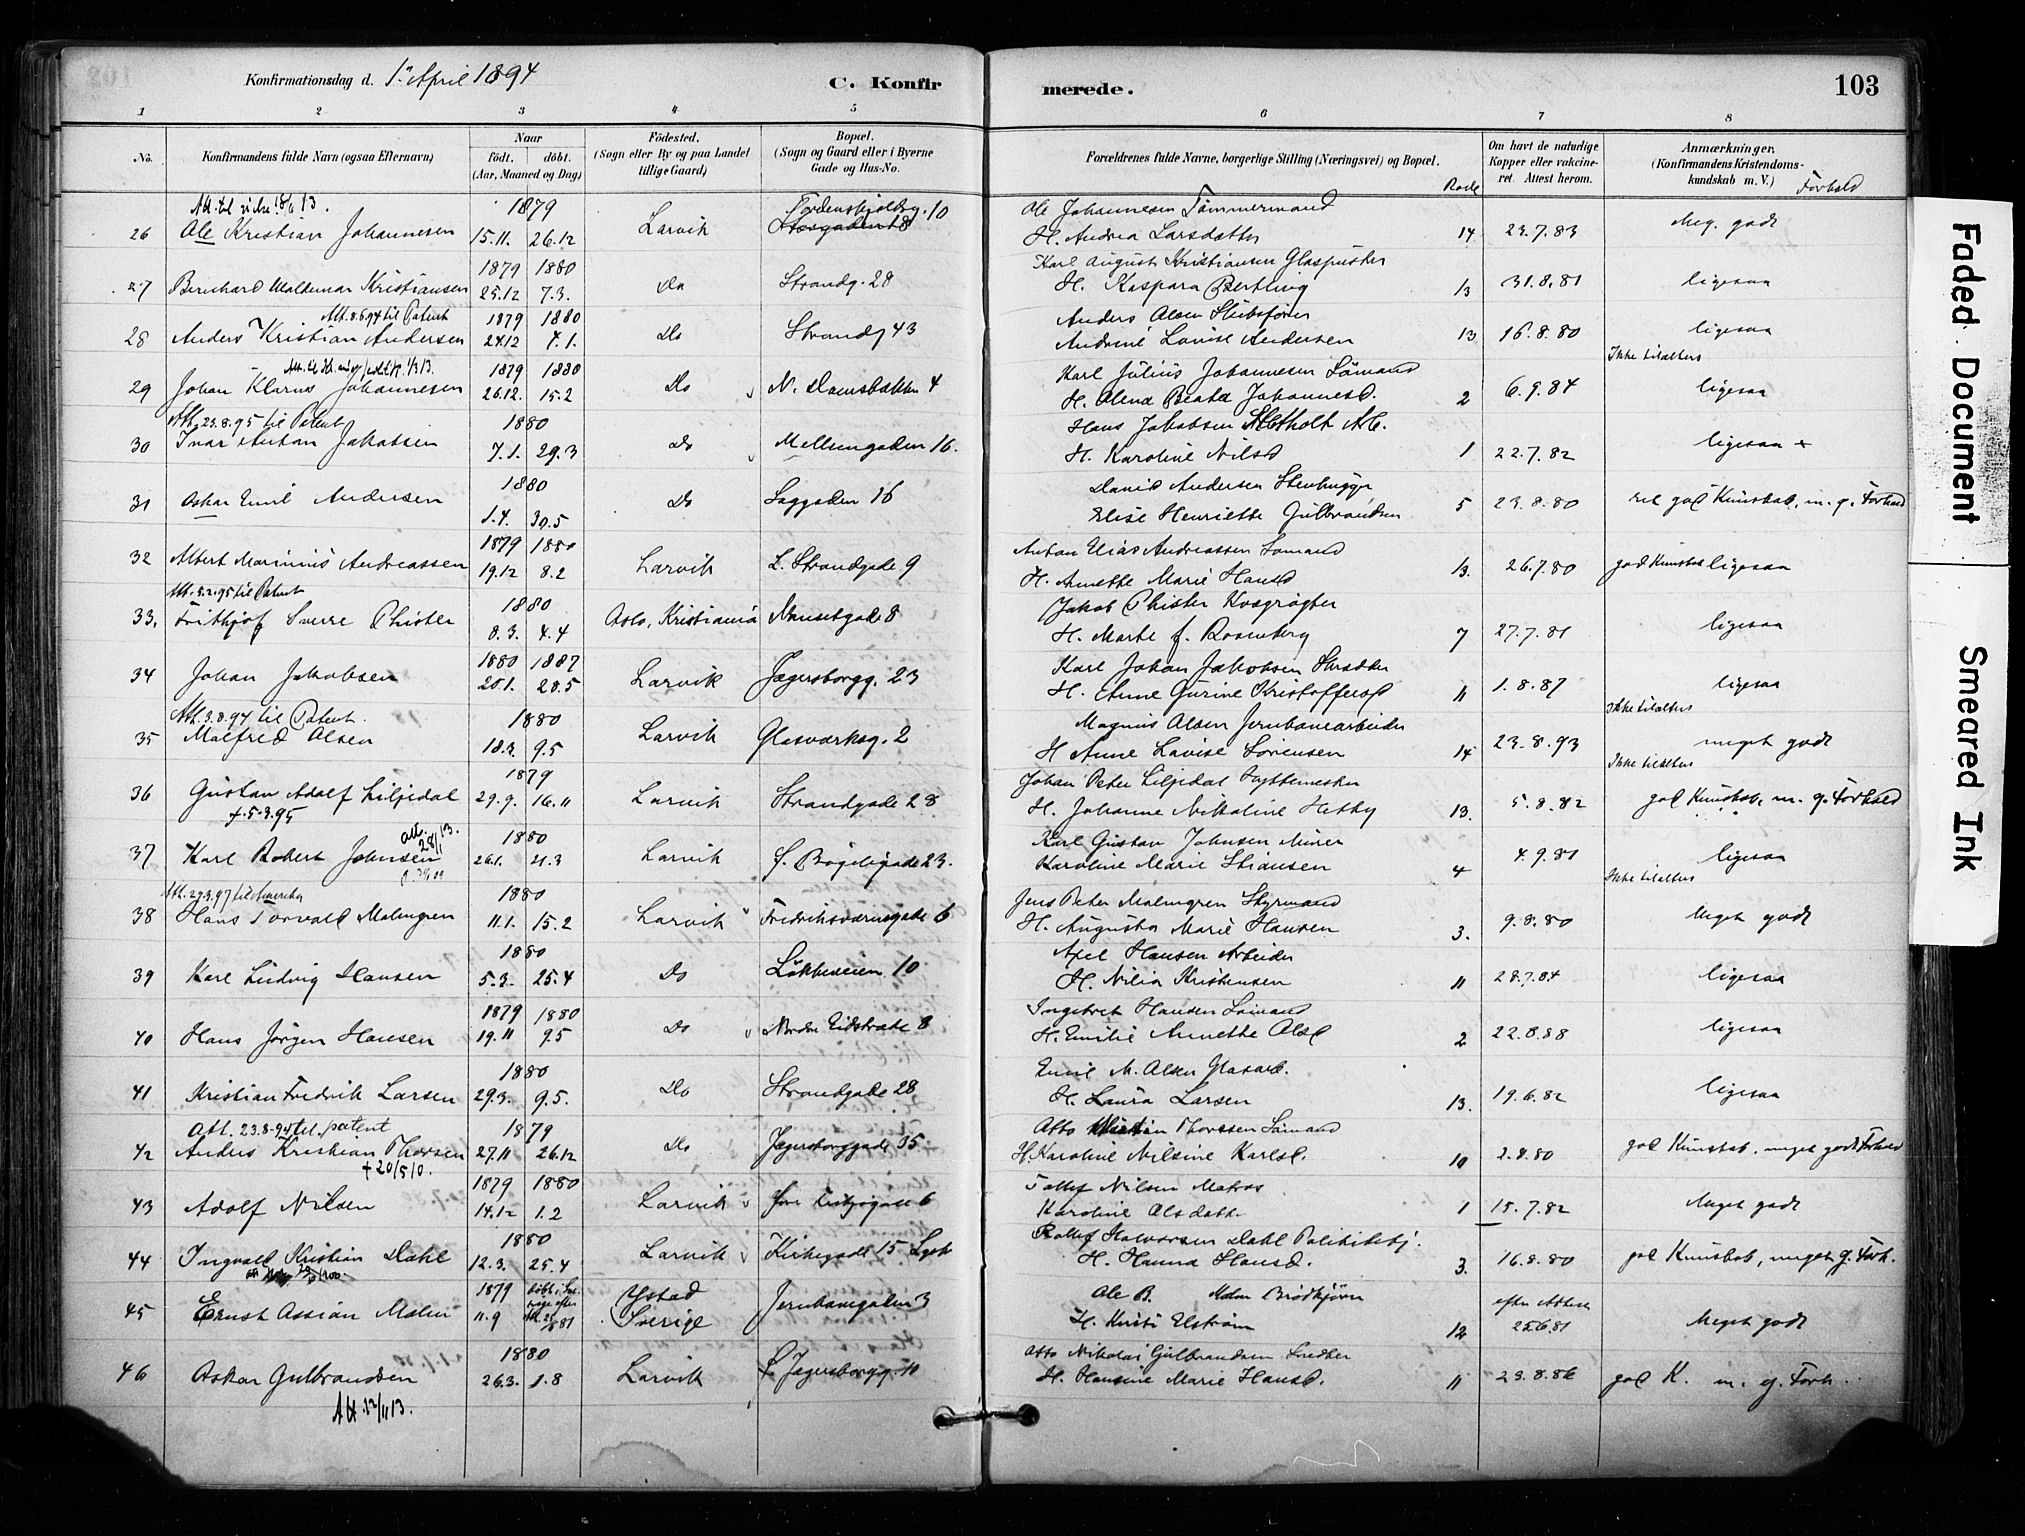 Konfirmationsdag d. 1. April 1894
C. Konfir merede. 103
1 2 3 4 5 6 7 8
No.
Konfirmandens fulde Navn (ogsaa Efternavn)
Naar
født. døbt.
(Aar, Maaned og Dag)
Fødested.
(Sogn eller By og paa Landet
tillige Gaard)
Bopæl.
(Sogn og Gaard eller i Byerne
Gade og Hus-No.
Forældrenes fulde Navne, borgerlige Stilling (Næringsvei) og Bopæl. Rode
Om havt de naturlige
Kopper eller vakcine-
ret. Attest herom.
Anmærkninger.
(Konfirmandens Kristendoms-
kundskab m. V.) Forhold
1879 Tordenskjoldsg. 10 Ole Johannesen Tømmermand
26 Ole Kristian Johannesen 15.11. 26.12 Larvik H. Andrea Larsdatter 14 23.7.83 Meg. godt
1879 1880 Karl August Kristiansen Glaspuster
27 Bernhard Waldemar Kristiansen 25.12 7.3. Do Strandg. 28 H. Kaspara Bertling 13 31.8.81 ligesaa
Att. 8.6.94 til Patent 1879 1880 Anders Olsen
28 Anders Kristian Andersen 24.12 4.1. Do Strandg 43 Andrine Lovise Andersen 13 16.8.80 ligesaa
1879 1880 Karl Julius Johannesen Sømand Ikke tilalters
29 Johan Klarus Johannesen 26.12. 15.2 Do N. Damsbakken 4 H. Olena Beate Johannesd. 2 6.9.84 ligesaa
Att. 23.8.95 til Patent 1880 Hans Jakobsen
30 Ivar Anton Jakobsen 7.1. 29.3 Do Mellemgaden 16. H. Karoline Nilsd 1 22.7.82 ligesaa
1880 David Andersen Stenhugger
31 Oskar Emil Andersen 1.4. 30.5 Do Saggaden 16 Elise Henriette Gulbrandsen 5 23.8.80 god Kunskab, m. g. Forhold
1879 1880 Anton Elias Andreassen Sømand
32 Albert Marinius Andreassen 19.12 8.2 Larvik L. Strandgade 9 H. Annette Marie Hansd 13. 26.7.80 god Kunskab ligesaa
Att. 8.2.95 til Patent 1880 Jakob Phister
33. Frithjof Sverre Phister 8.3. 4.4 Oslo, Kristiania Nansetgade 8 H. Marte f. Rosenberg 7 27.7.81 ligesaa
1880 1887 Karl Johan Jakobsen Skrædder
34 Johan Jakobsen 20.1. 28.5 Larvik Jegersborgg. 23 H. Anne Gurine Kristoffersd 11 1.8.87 ligesaa
Att. 3.8.94 til Patent. 1880 Magnus Olsen Jernbanearbeider Ikke tilalters
35 Malfred Olsen 18.3. 9.5 Larvik Glasværksg. 2 H Anne Lovise Sørensen 14 23.8.93 meget godt
1879 Johan Peter Liljedal Hyttemester Ikke tilalters
36 Gustav Adolf Liljedal 29.9. 16.11 Larvik Strandgade 28 H. Johanne Nikoline Hetty 13. 5.8.82 god Kunskab, m. g. Forhold
+ 5-3.95
Att. 28/1 13. 1880 Karl Gustav Johnsen Murer
37 Karl Robert Johnsen 26.1. 21.3 Larvik 23. Karoline Marie Stiansen 4 4.9.81 ligesaa
Att. 29.3.97 til Amerika 1880 Jens Peter Malmgren Styrmand Ikke tilalters
38 Hans Torvald Malmgren 11.1. 15.2 Larvik Fredriksværnsgade 6 H. Augusta Marie Hansen 3. 9.8.80 Meget godt
1880 Axel Hansen Arbeider
39 Karl Ludvig Hansen 5.3. 25.4 Do Løkkeveien 10 H. Nilia Kristensen 11 28.7.84 ligesaa
1879 1880 Ingebret Hansen Sømand
40 Hans Jørgen Hansen 19.11 9.5 Do 8 H. Emilie Annette Olsd 2 22.8.88 ligesaa
1880 Emil M. Olsen Glasarb.
41 Kristian Fredrik Larsen 29.3. 9.5. Do Strandgade 28 H. Laura Larsen 13. 19.6.82 ligesaa
Att. 23.8-94 til patent 1879 Otto Thorssen Sømand
42 Andres Kristian Thorsen 27.11 26.12 Do Jegersborggade 35 H. Karoline Nilsine Karlsd. 10 2.8.80 god Kunskab, meget godt Forhold
+ 20/5 10.
1879 1880 Tollef Nilsen Matros
43 Adolf Nilsen 14.12 1.2 Larvik 6 Karoline Olsdatter 1 15.7.82 Meget godt
1880 Rollef Halvorsen Dahl Politibetj.
44 Ingvald Kristian Dahl 12.3. 25.4 Larvik Kirkegade 15 H. Hanna Hansd. 3. 16.8.80 god Kunskab, meget g. Forh.
1879 døbt i Sve-
rige efter Ystad Ole B. Malm Brødkjører efter Attest
45 Ernst Ossian Malm 11.9 Sverige Jernbanegaden 3 H. Kirsti Elstrøm 12 25.6.81 Meget godt
1880 Otto Nikolai Gulbrandsen Snedker
46 Oskar Gulbrandsen 26.3. 1.8 Larvik Jegersborgg. H. Hansine Marie Hansd. 11 23.8.86 god K. m. g. Forh.
Att. 12/11 13.
Faded Document
Smeared Ink